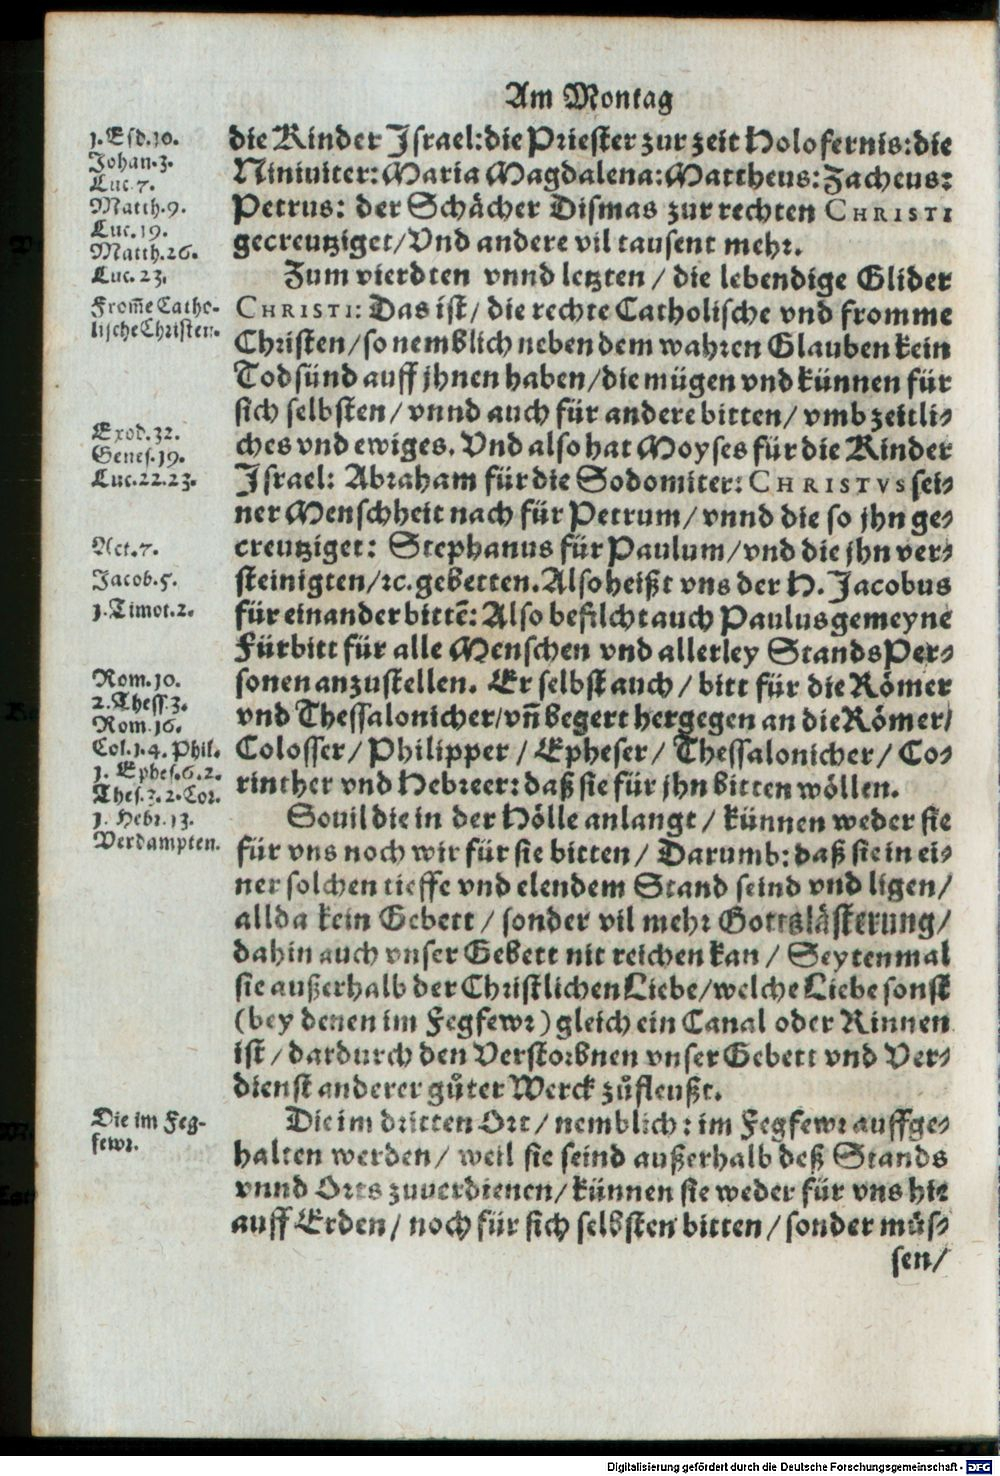 Am Montag
1. Esd. 10.
Johan. 3.
Luc. 7.
Matth. 9.
Luc. 19.
Matth. 26.
Luc. 23.
From̃e Catho-
lische Christen.
Exod. 32.
Genes. 19.
Luc. 22. 23.
Act. 7.
Jacob. 5.
1. Timot. 2.
Rom. 10.
2. Thess. 3.
Rom. 16.
Col. 1. 4. Phil.
1. Ephes. 6. 2.
Thes. 3. 2. Cor.
1. Hebr. 13.
Verdampten.
Die im Feg-
fewr.
die Kinder Jsrael: die Priester zur zeit Holofernis: die
Niniuiter: Maria Magdalena: Mattheus: Zacheus:
Petrus: der Schächer Dismas zur rechten CHRISTI
gecreutziget/ Vnd andere vil tausent mehr.
Zum vierdten vnnd letzten / die lebendige Glider
CHRISTI: Das ist/ die rechte Catholische vnd fromme
Christen/ so nemblich neben dem wahren Glauben kein
Todsünd auff jhnen haben/ die mügen vnd künnen für
sich selbsten/ vnnd auch für andere bitten/ vmb zeitli-
ches vnd ewiges. Vnd also hat Moyses für die Kinder
Jsrael: Abraham für die Sodomiter: CHRISTVS sei-
ner Menschheit nach für Petrum/ vnnd die so jhn ge-
creutziget: Stephanus für Paulum/ vnd die jhn ver-
steinigten/ ꝛc. gebetten. Also heißt vns der H. Jacobus
für einander bittē: Also befilcht auch Paulus gemeyne
Fürbitt für alle Menschen vnd allerley Stands Per-
sonen anzustellen. Er selbst auch / bitt für die Römer
vnd Thessalonicher/ vñ begert hergegen an die Römer/
Colosser/ Philipper / Epheser/ Thessalonicher/ Co-
rinther vnd Hebreer: daß sie für jhn bitten wöllen.
Souil die in der Hölle anlangt / künnen weder sie
für vns noch wir für sie bitten/ Darumb: daß sie in ei-
ner solchen tieffe vnd elendem Stand seind vnd ligen/
allda kein Gebett / sonder vil mehr Gottslästerung/
dahin auch vnser Gebett nit reichen kan / Seytenmal
sie außerhalb der Christlichen Liebe/ welche Liebe sonst
(bey denen im Fegfewr) gleich ein Canal oder Rinnen
ist / dardurch den Verstorbnen vnser Gebett vnd Ver-
dienst anderer gůter Werck zůfleußt.
Die im dritten Ort / nemblich: im Fegfewr auffge-
halten werden/ weil sie seind außerhalb deß Stands
vnnd Orts zuuerdienen/ künnen sie weder für vns hie
auff Erden / noch für sich selbsten bitten / sonder müs-
sen/
Digitalisierung gefördert durch die Deutsche Forschungsgemeinschaft - DFG